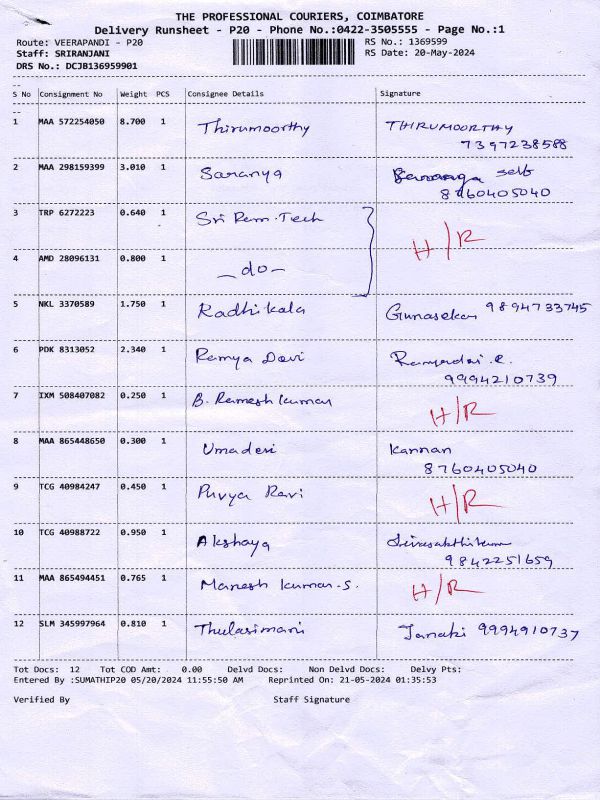 THE PROFESSIONAL COURIERS, COIMBATORE
Delivery Runsheet - P20 - Phone No.:0422-3505555 - Page No.:1
Route: VEERAPANDI - P20 RS No.: 1369599
Staff: SRIRANJANI RS Date: 20-May-2024
DRS No.: DCJB136959901
S No Consignment No Weight PCS Consignee Details Signature
1 MAA 572254050 8.700 1 Thirumoorthy THIRUMOORTHY
7397238588
2 MAA 298159399 3.010 1 Saranya Saranya self
8760405040
3 TRP 6272223 0.640 1 Sri Ram. Tech H/R
4 AMD 28096131 0.800 1 - do -
5 NKL 3370589 1.750 1 Radhikala Gunasekar 9894733745
6 PDK 8313052 2.340 1 Ramya Devi
9994210739
7 IXM 508407082 0.250 1 B. Ramesh kumar H/R
8 MAA 865448650 0.300 1 Umadevi Kannan
8760405040
9 TCG 40984247 0.450 1 Ravi H/R
10 TCG 40988722 0.950 1 Akshaya
9842251659
11 MAA 865494451 0.765 1 Manesh kumar. S. H/R
12 SLM 345997964 0.810 1 Thulasimani Janaki 9994910737
Tot Docs: 12 Tot COD Amt: 0.00 Delvd Docs: Non Delvd Docs: Delvy Pts:
Entered By :SUMATHIP20 05/20/2024 11:55:50 AM Reprinted On: 21-05-2024 01:35:53
Verified By Staff Signature